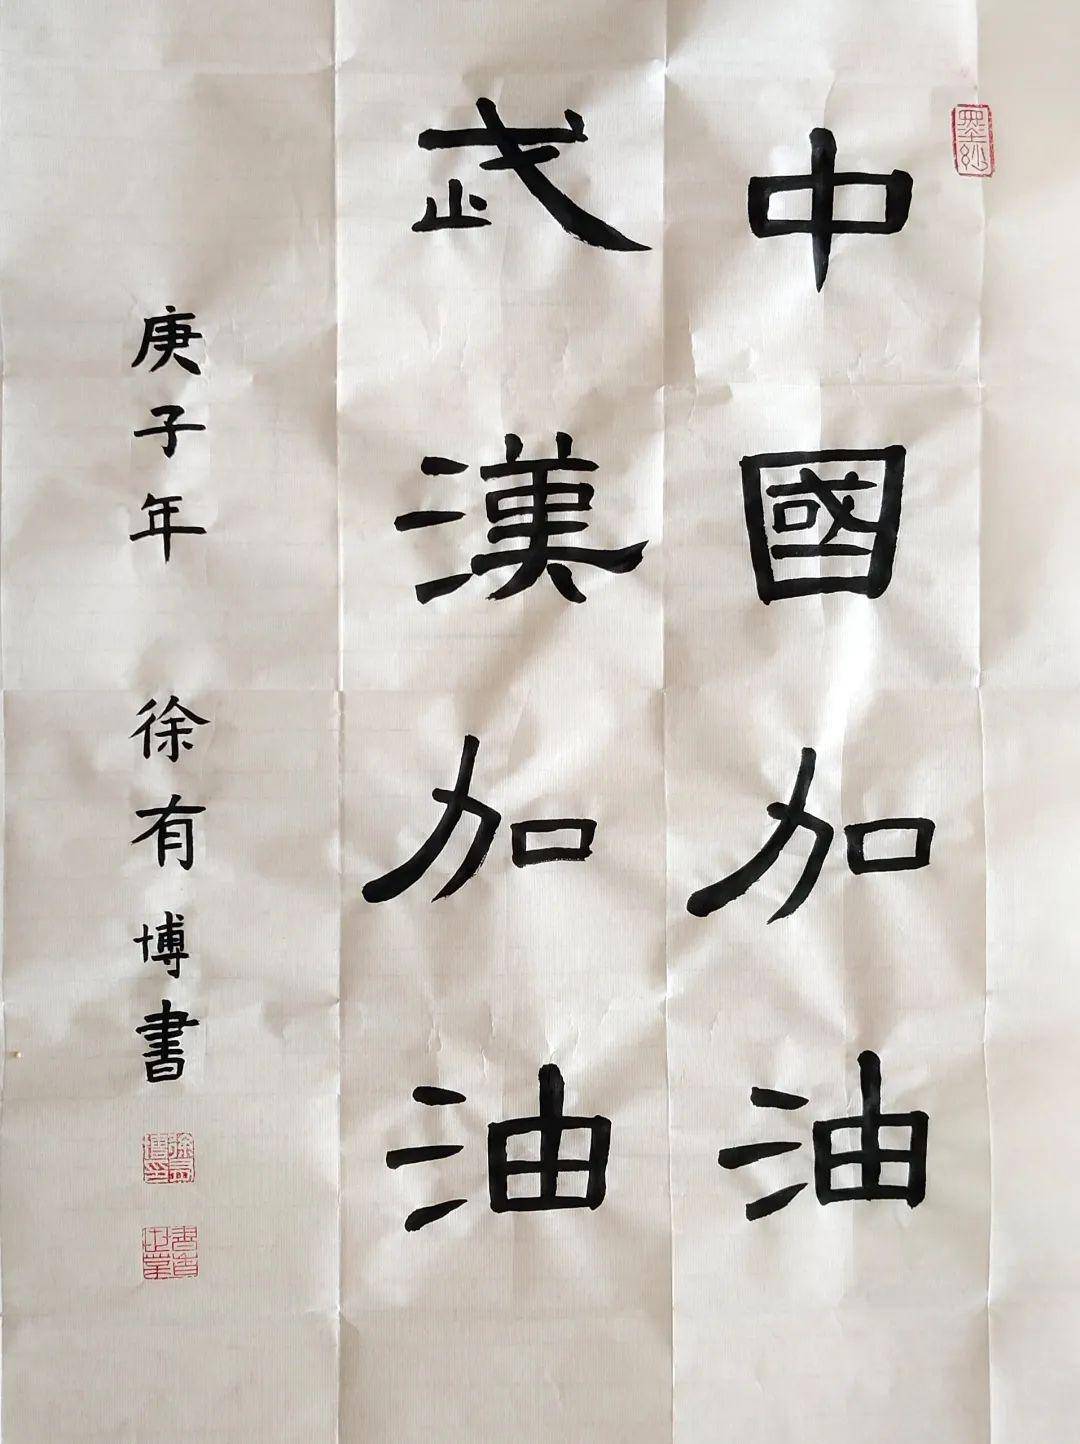 中國加油
武漢加油
庚子年 徐有博書
墨妙